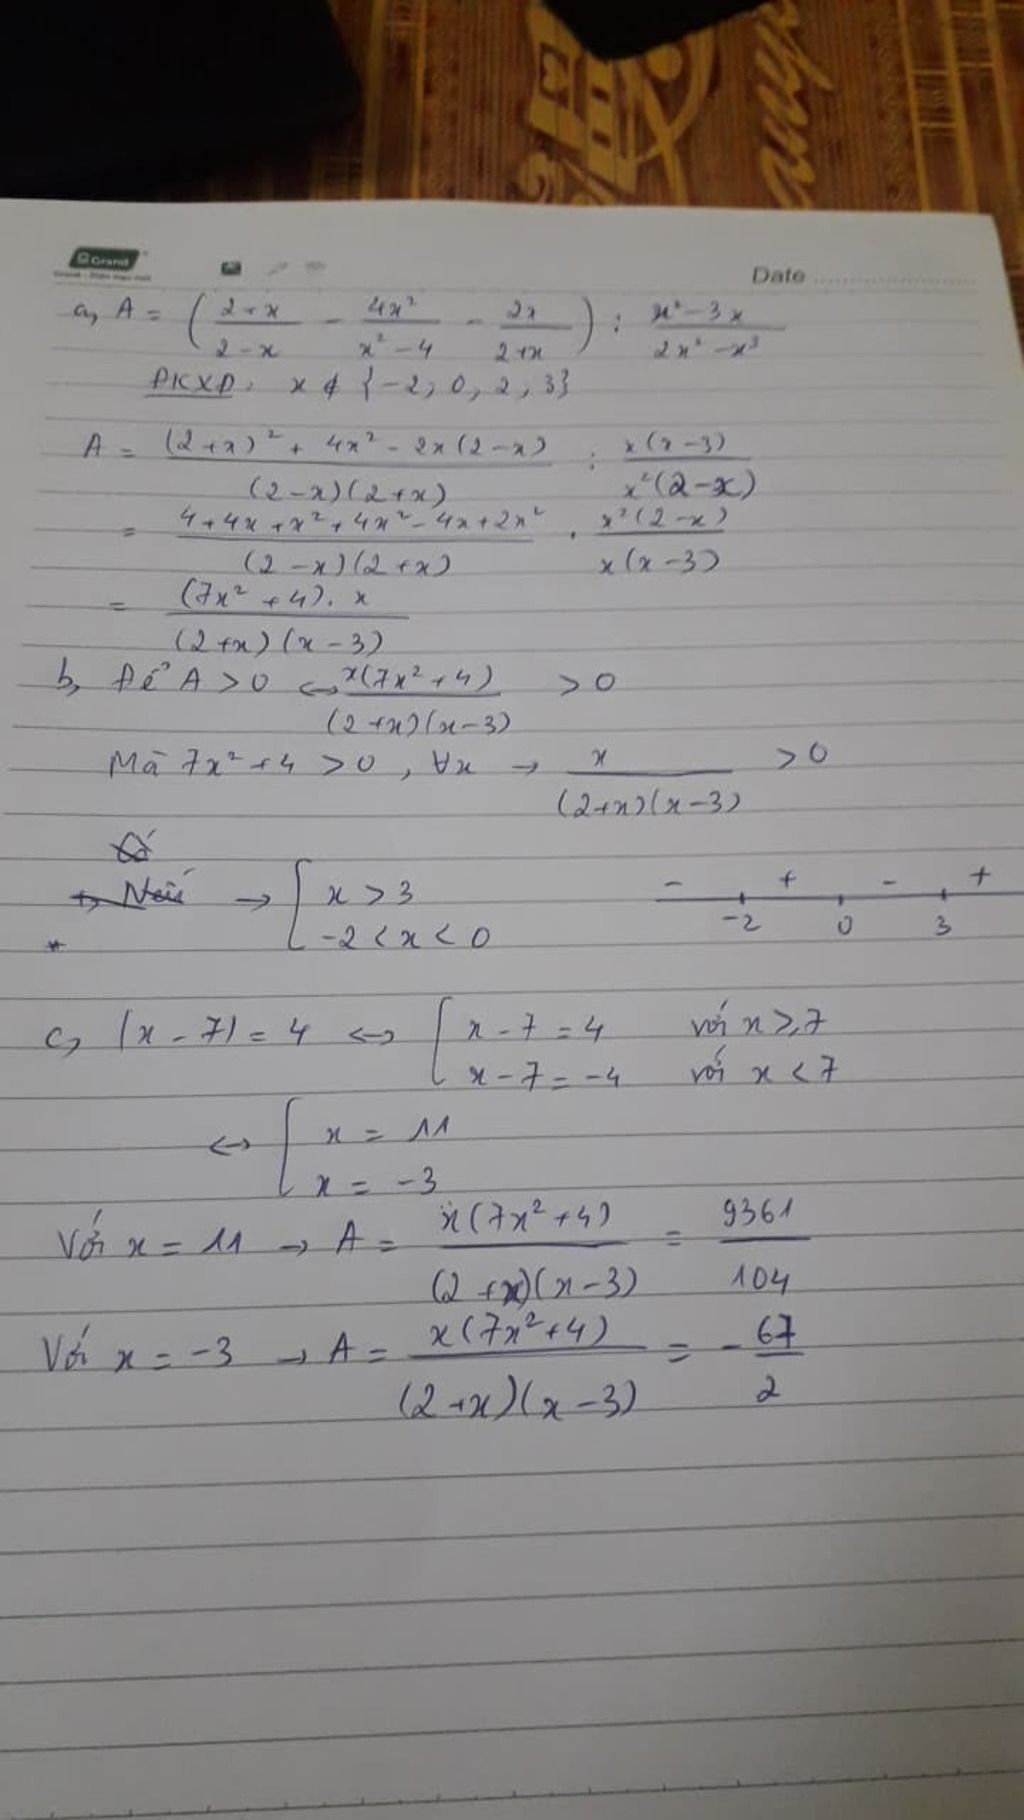 Grand
Date
a, A = ( (2+x)/(2-x) - 4x²/(x²-4) - 2x/(2+x) ) : (x²-3x)/(2x²-x³)
ĐKXĐ: x ∉ {-2, 0, 2, 3}
A = ((2+x)² + 4x² - 2x(2-x))/((2-x)(2+x)) : x(x-3)/(x²(2-x))
= (4+4x+x²+4x²-4x+2x²)/((2-x)(2+x)) . x²(2-x)/(x(x-3))
= (7x²+4).x/((2+x)(x-3))
b, Để A > 0 ↔ x(7x²+4)/((2+x)(x-3)) > 0
Mà 7x²+4 > 0, ∀x → x/((2+x)(x-3)) > 0
→ [ x > 3
-2 < x < 0
- + - +
-2 0 3
c, |x-7| = 4 ↔ [ x-7 = 4 với x ≥ 7
x-7 = -4 với x < 7
↔ [ x = 11
x = -3
Với x = 11 → A = x(7x²+4)/((2+x)(x-3)) = 9361/104
Với x = -3 → A = x(7x²+4)/((2+x)(x-3)) = -67/2